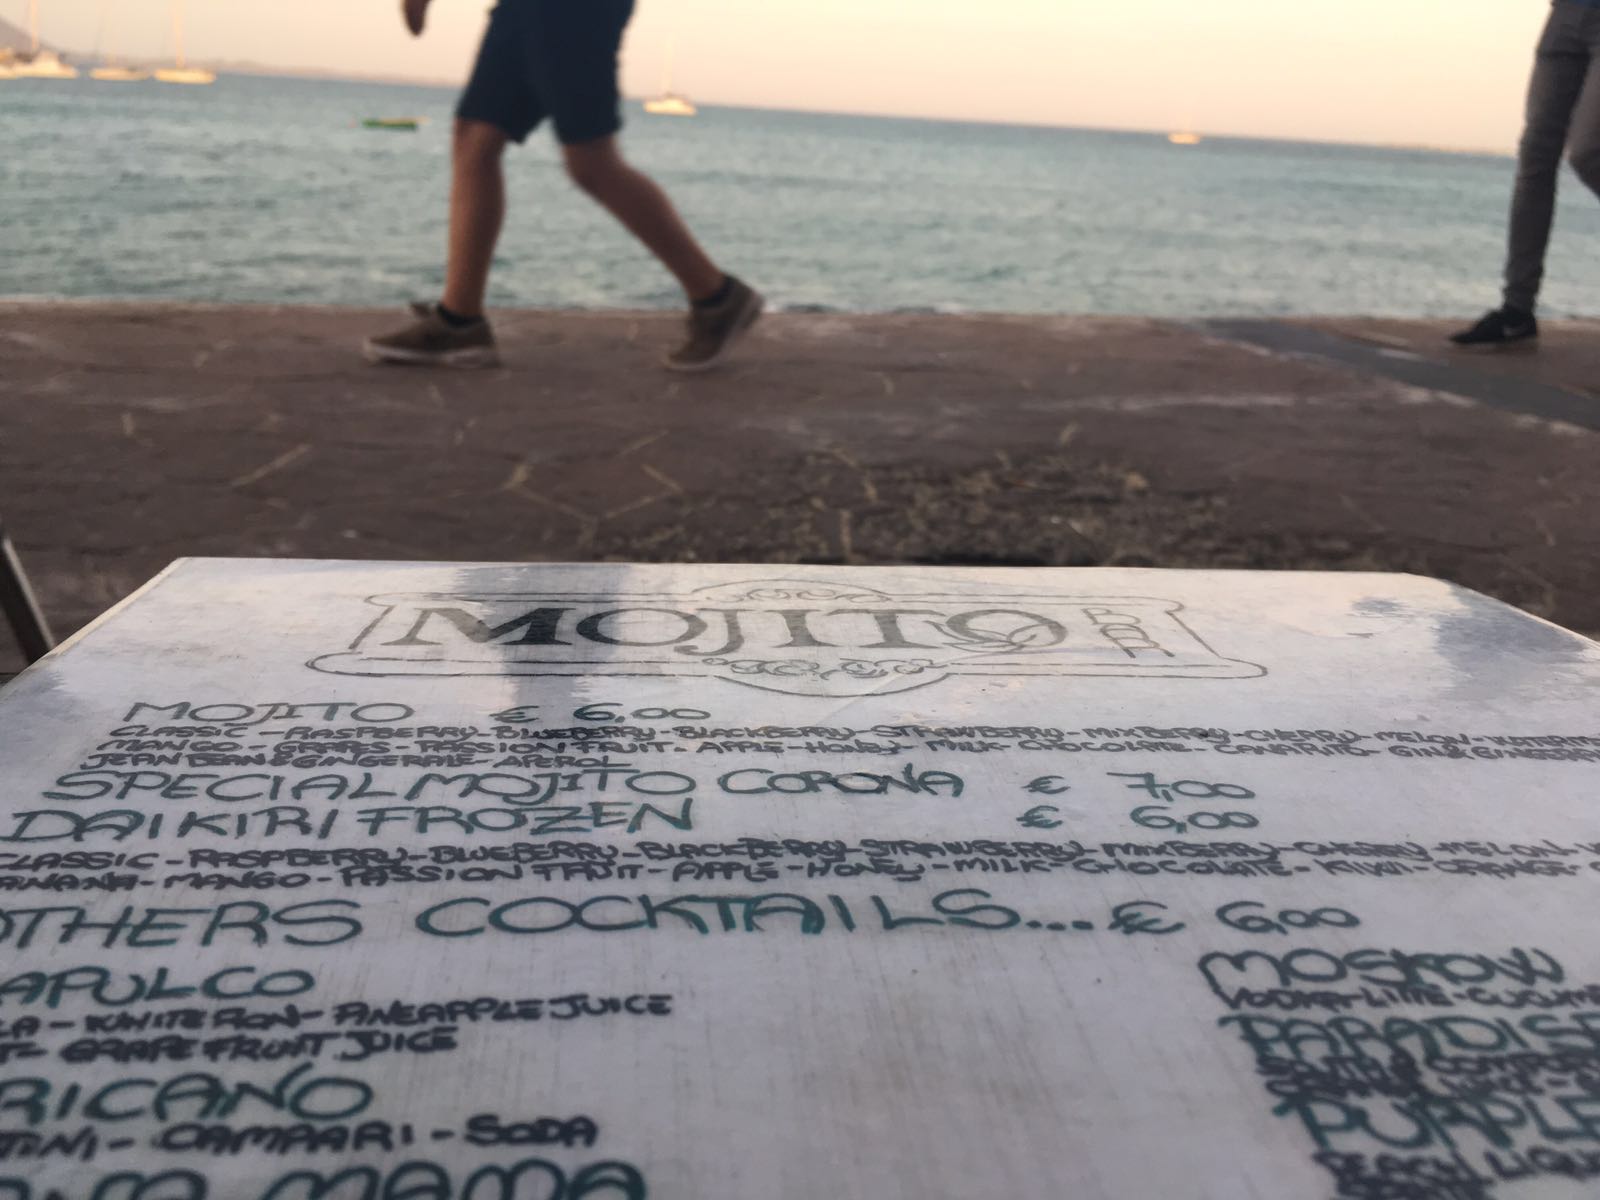 MOJITO BAR
MOJITO € 6,00
CLASSIC - RASPBERRY - BLUEBERRY - BLACKBERRY - STRAWBERRY - MIXBERRY - CHERRY - MELON -
MANGO - GRAPES - PASSION FRUIT - APPLE - HONEY - MILK - CHOCOLATE - CANARITO - GIN &
JEAN BEAN & GINGERALE - APEROL
SPECIAL MOJITO CORONA € 7,00
DAIKIRI FROZEN € 6,00
CLASSIC - RASPBERRY - BLUEBERRY - BLACKBERRY - STRAWBERRY - MIXBERRY - CHERRY - MELON -
ANANA - MANGO - PASSION FRUIT - APPLE - HONEY - MILK - CHOCOLATE - KIWI - ORANGE -
OTHERS COCKTAILS... € 6,00
APULCO
LA - WHITE RON - PINEAPPLE JUICE
T - GRAPEFRUIT JUICE
RICANO
TINI - CAMPARI - SODA
MAMA
MOSKOW
VODKA - LIME - CUCUM
PARADISE
PURPLE
PEACH LIQU